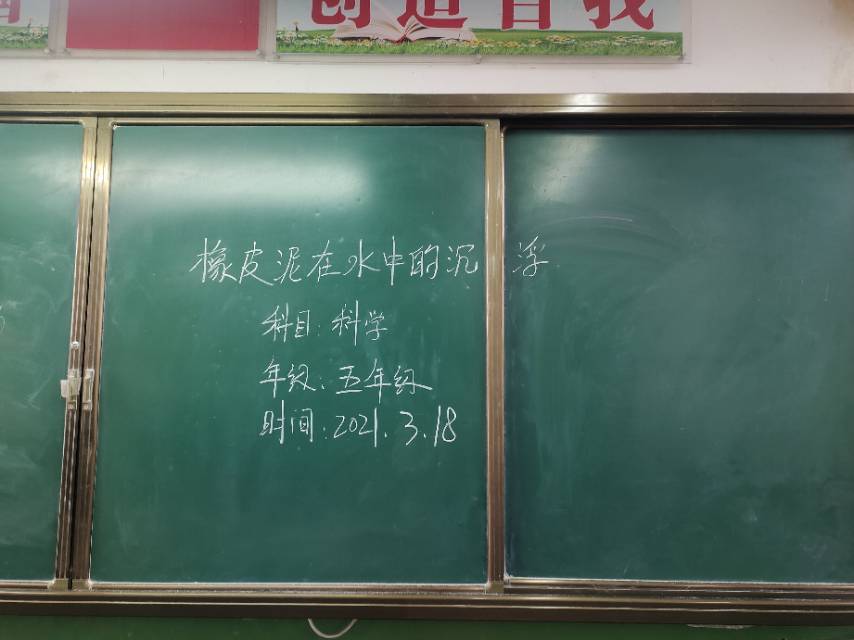 创造自我
橡皮泥在水中的沉浮
科目:科学
年级:五年级
时间:2021.3.18